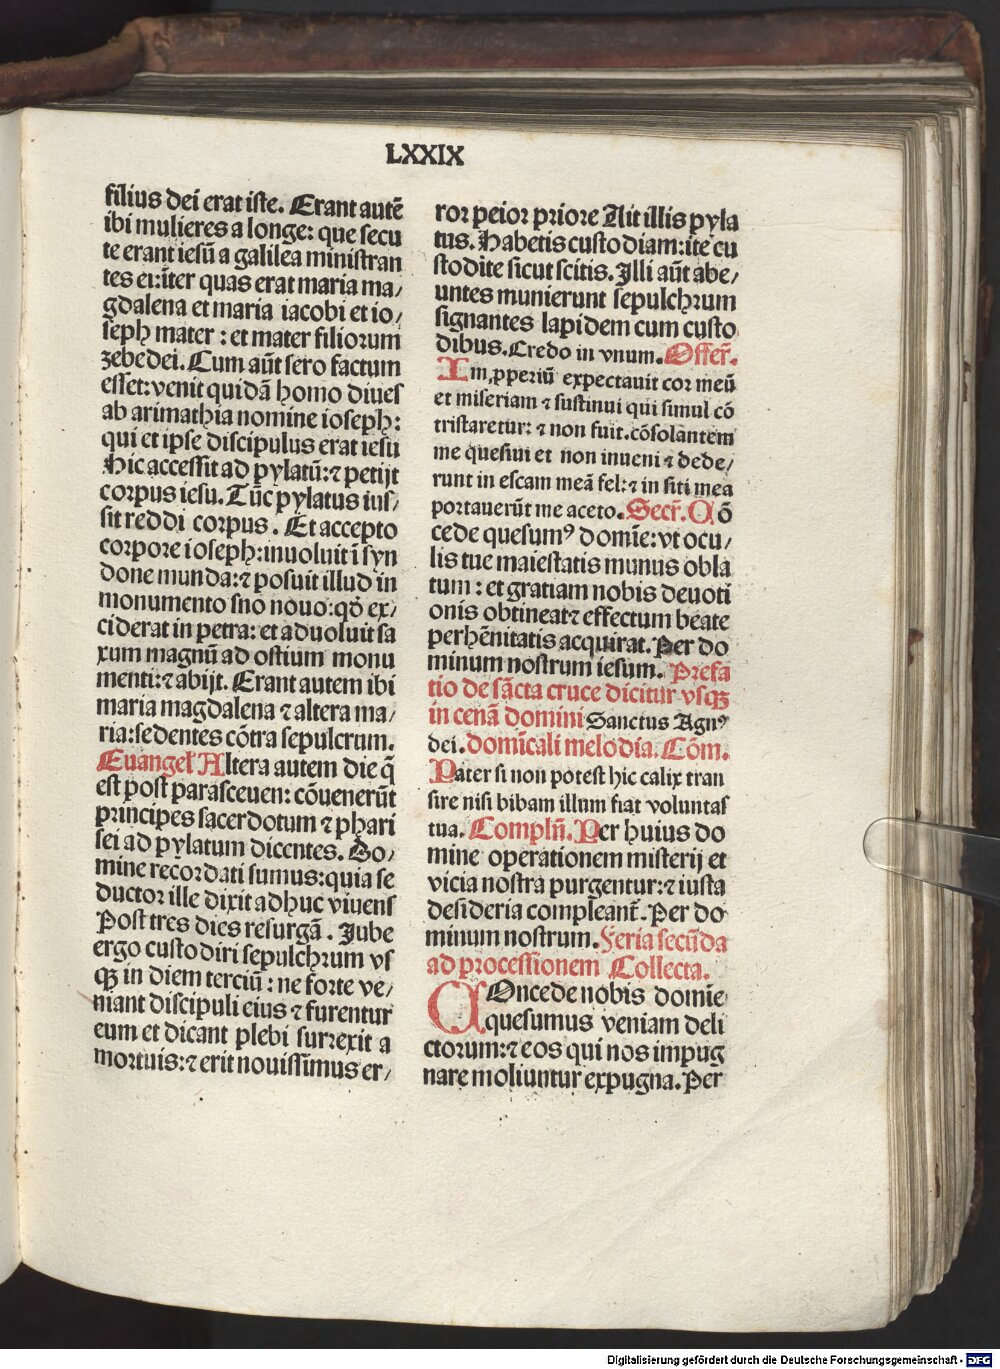 LXXIX
filius dei erat iste. Erant autē
ibi mulieres a longe: que secu
te erant iesū a galilea ministran
tes ei:īter quas erat maria ma/
gdalena et maria iacobi et io/
seph mater : et mater filiorum
zebedei. Cum aūt sero factum
esset: venit quidā homo diues
ab arimathia nomine ioseph:
qui et ipse discipulus erat iesu
Hic accessit ad pylatū: ⁊ petijt
corpus iesu. Tūc pylatus ius/
sit reddi corpus. Et accepto
corpore ioseph: inuoluit ī syn
done munda: ⁊ posuit illud in
monumento suo nouo: qđ ex/
ciderat in petra: et aduoluit sa
xum magnū ad ostium monu
menti: ⁊ abijt. Erant autem ibi
maria magdalena ⁊ altera ma/
ria: sedentes cōtra sepulcrum.
Euangeł Altera autem die q̄
est post parasceuen: cōuenerūt
principes sacerdotum ⁊ phari
sei ad pylatum dicentes. Do/
mine recordati sumus: quia se
ductor ille dixit adhuc viuens
Post tres dies resurgā. Jube
ergo custodiri sepulchrum vs
qꝫ in diem terciū : ne forte ve/
niant discipuli eius ⁊ furentur
eum et dicant plebi surrexit a
mortuis: ⁊ erit nouissimus er/
ror peior priore Ait illis pyla
tus. Habetis custodiam: ite cu
stodite sicut scitis. Illi aūt abe/
untes munierunt sepulchrum
signantes lapidem cum custo
dibus. Credo in vnum. Offer̄.
Imꝓperiū expectauit cor meū
et miseriam ⁊ sustinui qui simul cō
tristaretur: ⁊ non fuit. cōsolantem
me quesiui et non inueni ⁊ dede/
runt in escam meā fel: ⁊ in siti mea
portauerūt me aceto. Secr̄. Cō
cede quesumꝰ domīe: vt ocu/
lis tue maiestatis munus obla
tum : et gratiam nobis deuoti
onis obtineat⁊ effectum beate
perhēnitatis acquirat. Per do
minum nostrum iesum. Prefa
tio de sācta cruce dicitur vsqꝫ
in cenā domini Sanctus Agnꝰ
dei. domīcali melodia. Cōm.
Pater si non potest hic calix tran
sire nisi bibam illum fiat voluntas
tua. Compln̄. Per huius do
mine operationem misterij et
vicia nostra purgentur: ⁊ iusta
desideria compleant̄. Per do
minum nostrum. Feria secūda
ad processionem Collecta.
COncede nobis domīe
quesumus veniam deli
ctorum: ⁊ eos qui nos impug
nare moliuntur expugna. Per
Digitalisierung gefördert durch die Deutsche Forschungsgemeinschaft - DFG